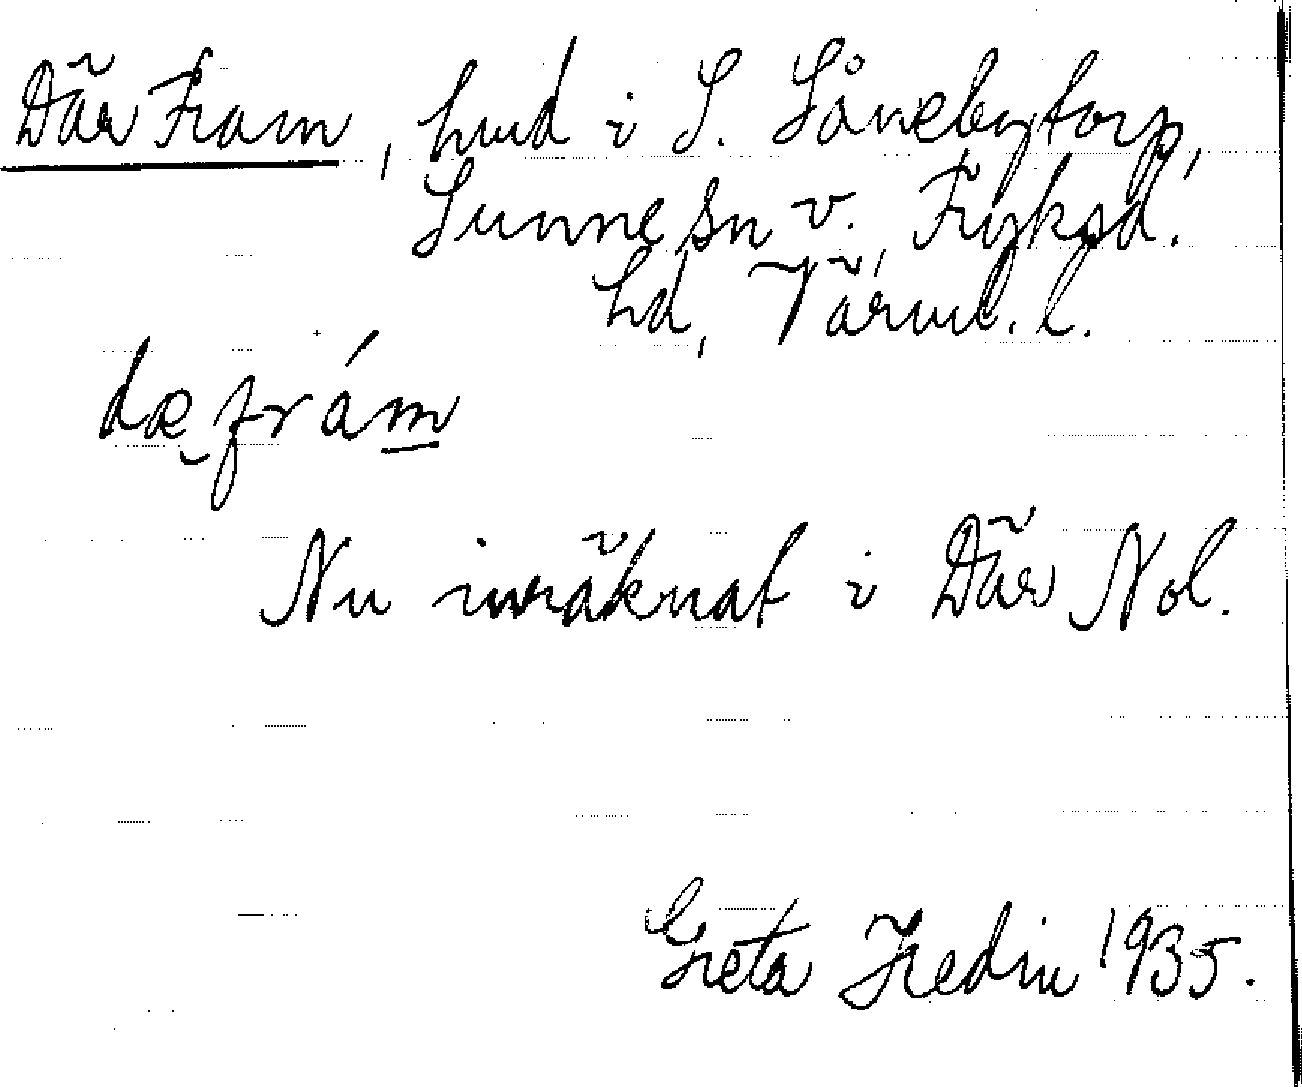 Där Fram, hmd i S. Såneby torp,
Sunne sn v., Fryksd.
hd, Värml. l.
dæ frám
Nu inräknat i Där Nol.
Greta Hedin 1935.